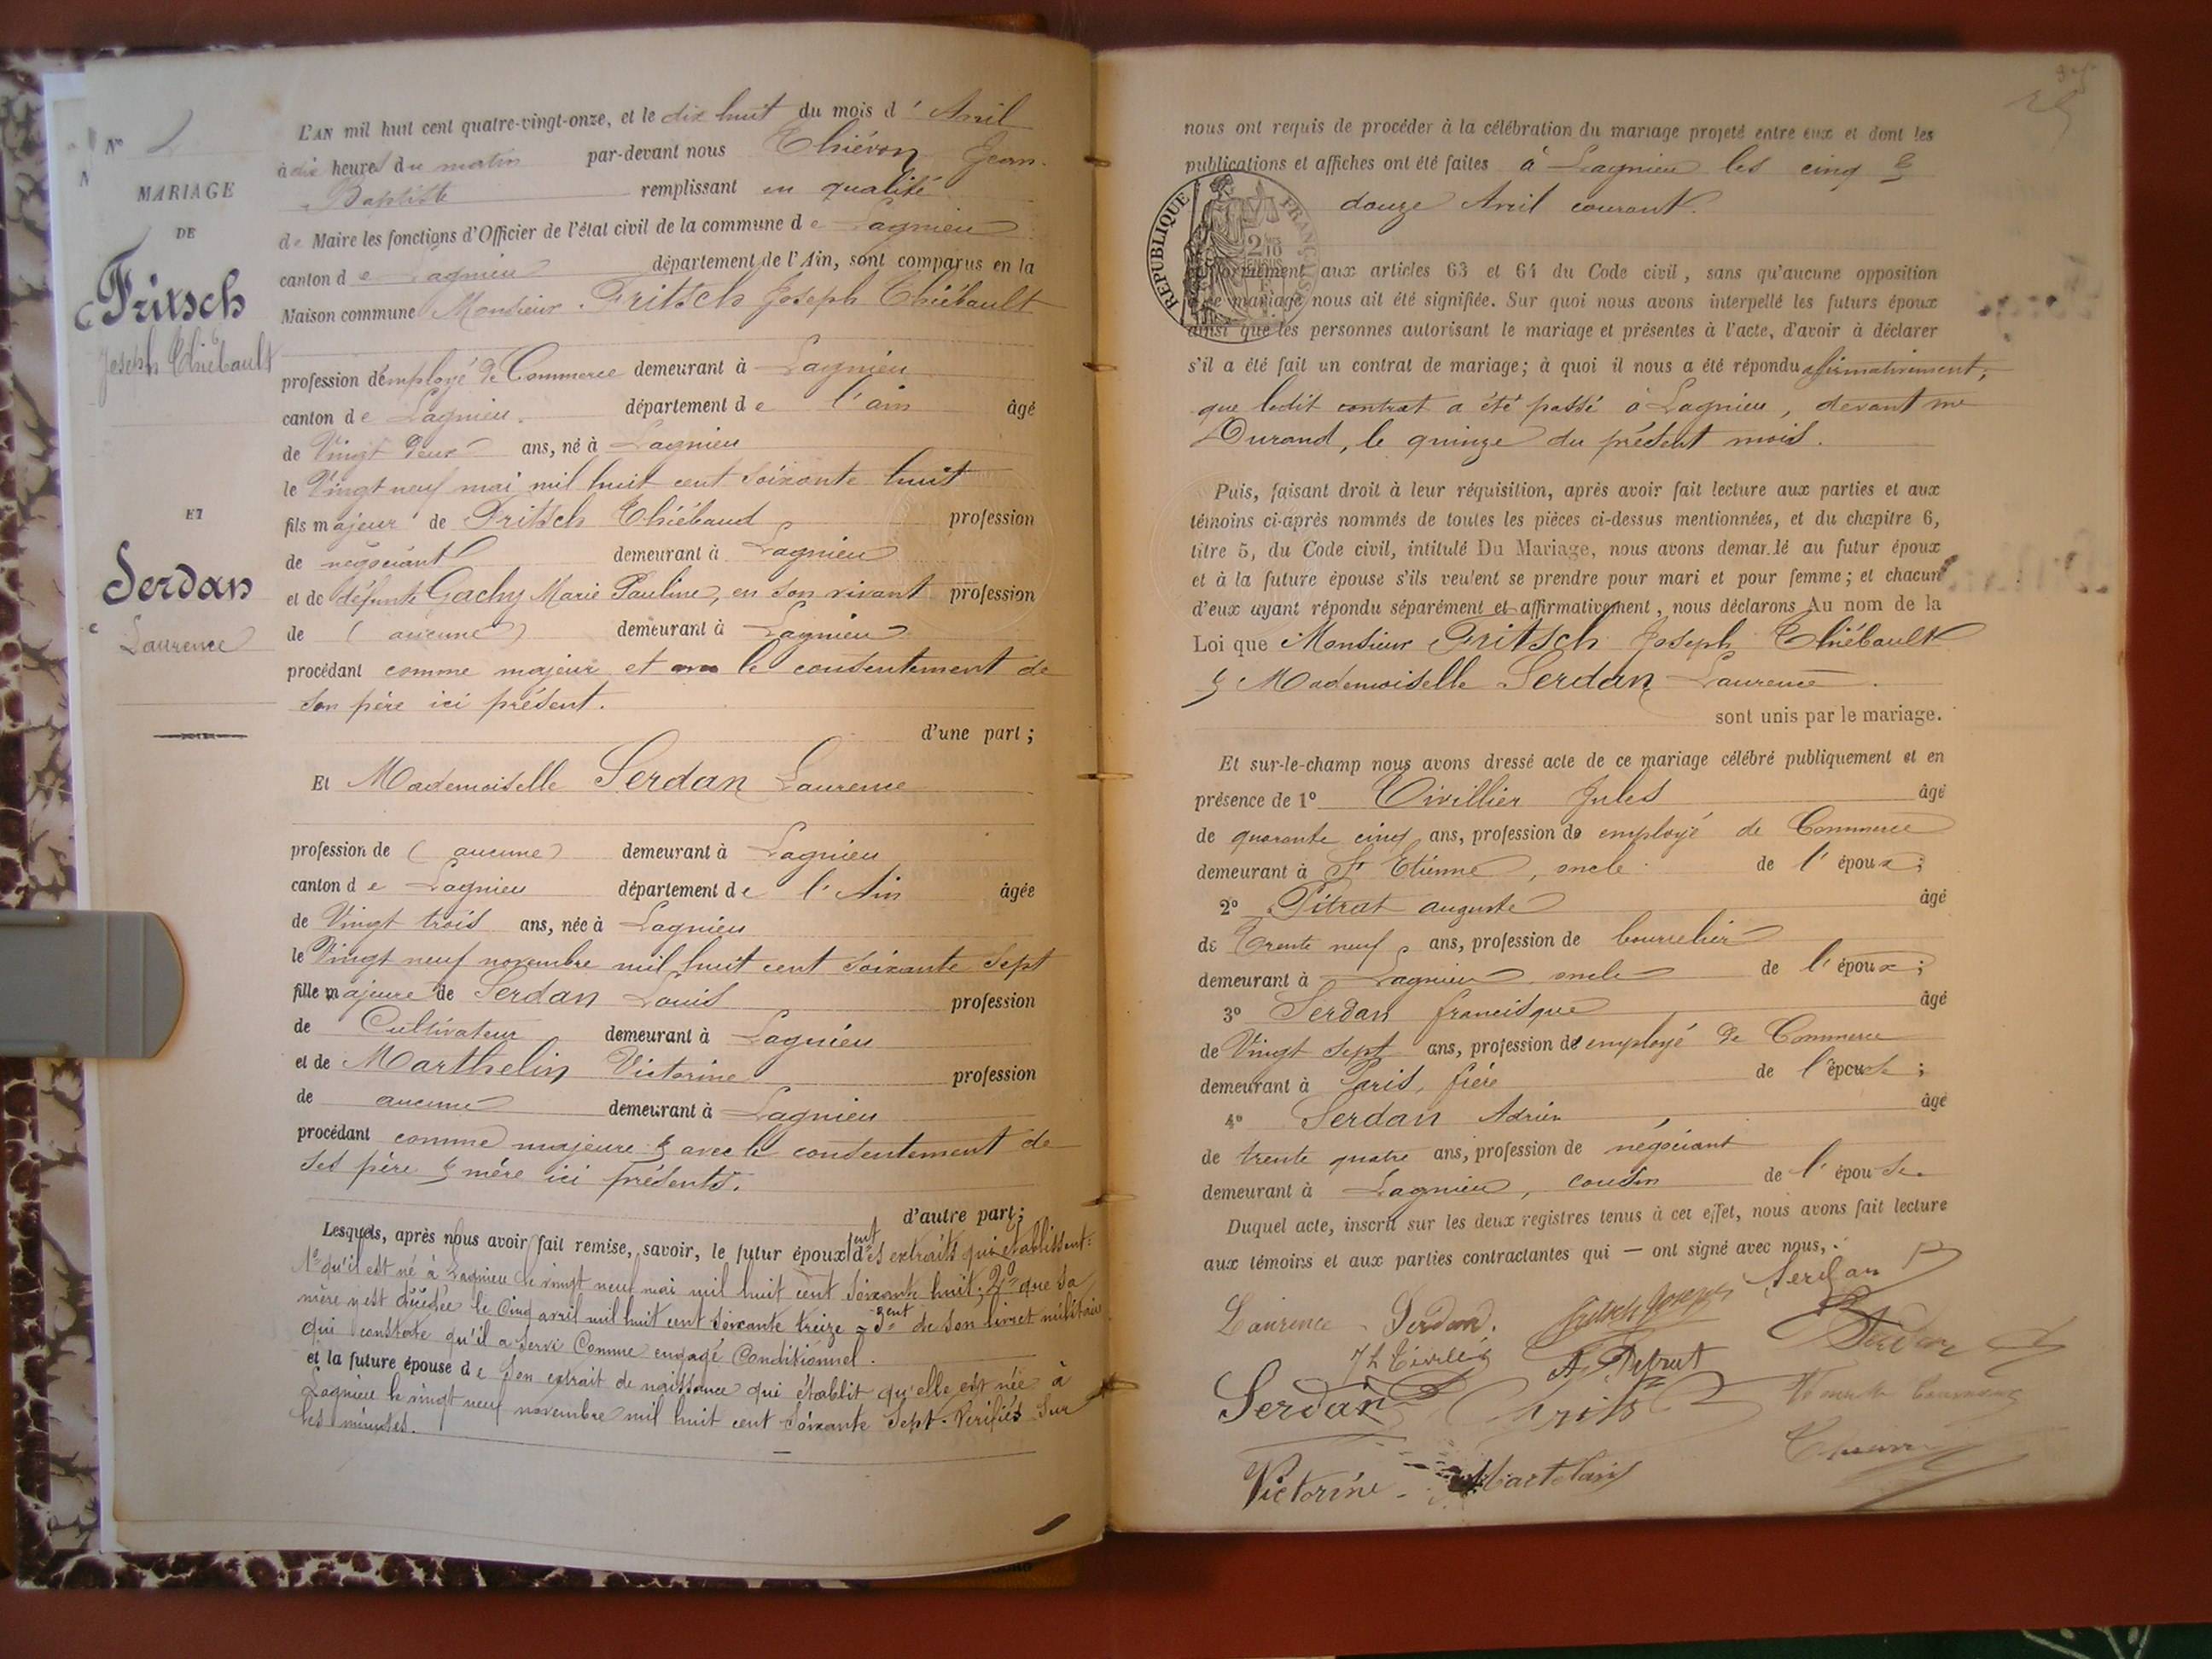 N° 2
MARIAGE
DE
Fritsch
Joseph Thiébault
ET
Serdan
Laurence
L'AN mil huit cent quatre-vingt-onze, et le dix huit du mois d' Avril
à dix heures du matin par-devant nous Thiévon Jean-
Baptiste remplissant en qualité
de Maire les fonctions d'Officier de l'état civil de la commune de Lagnieu
canton de Lagnieu département de l'Ain, sont comparus en la
Maison commune Monsieur Fritsch Joseph Thiébault
profession d'employé de Commerce demeurant à Lagnieu
canton de Lagnieu département de l'ain âgé
de Vingt deux ans, né à Lagnieu
le Vingt neuf mai mil huit cent soixante huit
fils majeur de Fritsch Thiébaud profession
de négociant demeurant à Lagnieu
et de défunte Gachy Marie Pauline, en son vivant profession
de (aucune) demeurant à Lagnieu
procédant comme majeur et avec le consentement de
son père ici présent.
d'une part ;
Et Mademoiselle Serdan Laurence
profession de (aucune) demeurant à Lagnieu
canton de Lagnieu département de l'Ain âgée
de Vingt trois ans, née à Lagnieu
le Vingt neuf novembre mil huit cent soixante sept
fille majeure de Serdan Louis profession
de Cultivateur demeurant à Lagnieu
et de Marthelin Victorine profession
de aucune demeurant à Lagnieu
procédant comme majeure & avec le consentement de
ses père & mère ici présents.
d'autre part ;
Lesquels, après nous avoir fait remise, savoir, le futur époux 1ent des extraits qui établissent:
1° qu'il est né à Lagnieu le vingt neuf mai mil huit cent soixante huit; 2° que sa
mère y est décédée le cinq avril mil huit cent soixante treize = 3ent de son livret militaire
qui constate qu'il a servi comme engagé conditionnel.
et la future épouse de son extrait de naissance qui établit qu'elle est née à
Lagnieu le vingt neuf novembre mil huit cent soixante sept. Vérifiés sur
les minutes.
nous ont requis de procéder à la célébration du mariage projeté entre eux et dont les
publications et affiches ont été faites à Lagnieu les cinq &
douze Avril courant.
RÉPUBLIQUE FRANÇAISE
aux articles 63 et 64 du Code civil, sans qu'aucune opposition
mariage nous ait été signifiée. Sur quoi nous avons interpellé les futurs époux
ainsi que les personnes autorisant le mariage et présentes à l'acte, d'avoir à déclarer
s'il a été fait un contrat de mariage; à quoi il nous a été répondu afirmativement,
que ledit contrat a été passé à Lagnieu, devant me
Durand, le quinze du présent mois.
Puis, faisant droit à leur réquisition, après avoir fait lecture aux parties et aux
témoins ci-après nommés de toutes les pièces ci-dessus mentionnées, et du chapitre 6,
titre 5, du Code civil, intitulé Du Mariage, nous avons demandé au futur époux
et à la future épouse s'ils veulent se prendre pour mari et pour femme; et chacun
d'eux ayant répondu séparément et affirmativement, nous déclarons Au nom de la
Loi que Monsieur Fritsch Joseph Thiébault
& Mademoiselle Serdan Laurence.
sont unis par le mariage.
Et sur-le-champ nous avons dressé acte de ce mariage célébré publiquement et en
présence de 1° Civillier Jules âgé
de quarante cinq ans, profession de employé de Commerce
demeurant à St Etienne, oncle de l'époux;
2° Pitrat auguste âgé
de Trente neuf ans, profession de bourrelier
demeurant à Lagnieu oncle de l'époux;
3° Serdan francisque âgé
de Vingt sept ans, profession de employé de Commerce
demeurant à Paris, frère de l'épouse;
4° Serdan Adrien âgé
de trente quatre ans, profession de négociant
demeurant à Lagnieu, cousin de l'épouse.
Duquel acte, inscrit sur les deux registres tenus à cet effet, nous avons fait lecture
aux témoins et aux parties contractantes qui — ont signé avec nous,
Serdan
Laurence Serdan. Fritsch Joseph
Serdan
A. Pitrat
Serdan
Victorine Martelain